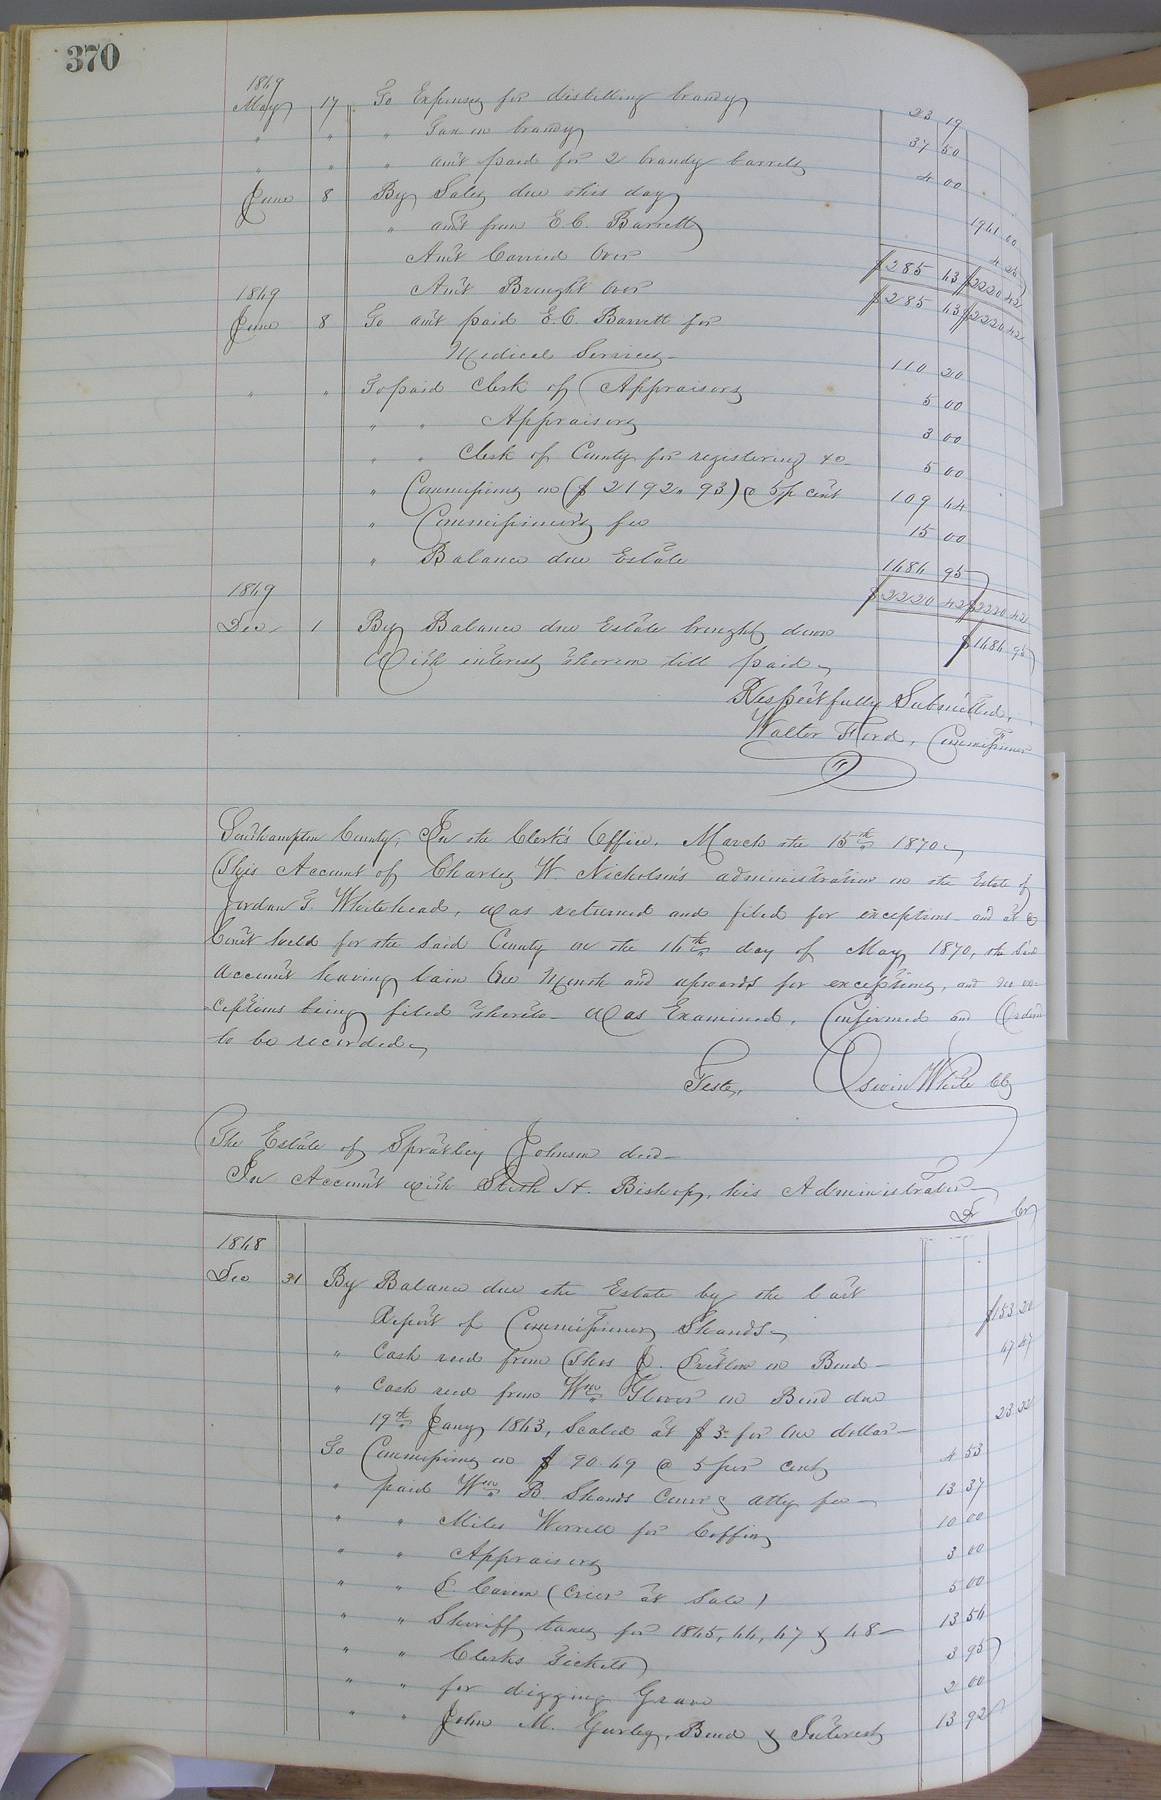 370
1869
May 17 To Expenses for distilling brandy 23 19
" " " Tax on brandy 37 50
" " " amt paid for 2 brandy barrels 4 00
June 8 By Sales due this day 1961 00
" amt from E. C. Barrett
Amt Carried Over $285 63 $2220 42
1869
Amt Brought Over $285 63 $2220 42
June 8 To amt paid E. C. Barrett for
Medical Services 110 20
" " To paid Clerk of Appraisers 5 00
" " Appraisers 3 00
" " Clerk of County for registering &c 5 00
" Commissions on ($2192.93) @ 5 pr cent 109 64
" Commissioner's fee 15 00
" Balance due Estate 1686 95
$2220 42 $2220 42
1869
Dec 1 By Balance due Estate brought down $1686 95
With interest thereon till paid
Respectfully Submitted,
Walter Ford, Commissioner
Southampton County, In the Clerk's Office, March the 15th 1870
This Account of Charles W. Nicholson's administration on the Estate of
Jordan T. Whitehead, was returned and filed for exceptions and at a
Court held for the said County on the 16th day of May 1870, the said
account having lain One Month and upwards for exceptions, and no ex-
ceptions being filed thereto was Examined, Confirmed and Ordered
to be recorded
Teste, Oswin White Clk
The Estate of Spratley Johnson decd
In Account with H. Bishop, his Administrator
Dr Cr
1868
Dec 31 By Balance due the Estate by the last
Report of Commissioner Shands $153 20
" Cash recd from Thos J. on Bond 67 47
" Cash recd from Wm Glover on Bond due
19th Jany 1863, Scaled at $3 for One dollar 23 22
To Commissions on $90.69 @ 5 per cent 4 53
" paid Wm B. Shands atty fee 13 37
" " Miles Worrell for Coffin 10 00
" " Appraisers 3 00
" " (Crier at Sale) 5 00
" " Sheriff taxes for 1865, 66, 67 & 68 13 56
" " Clerks Tickets 3 95
" " for digging Grave 2 00
" " John M. Gurley, Bond & Interest 13 92